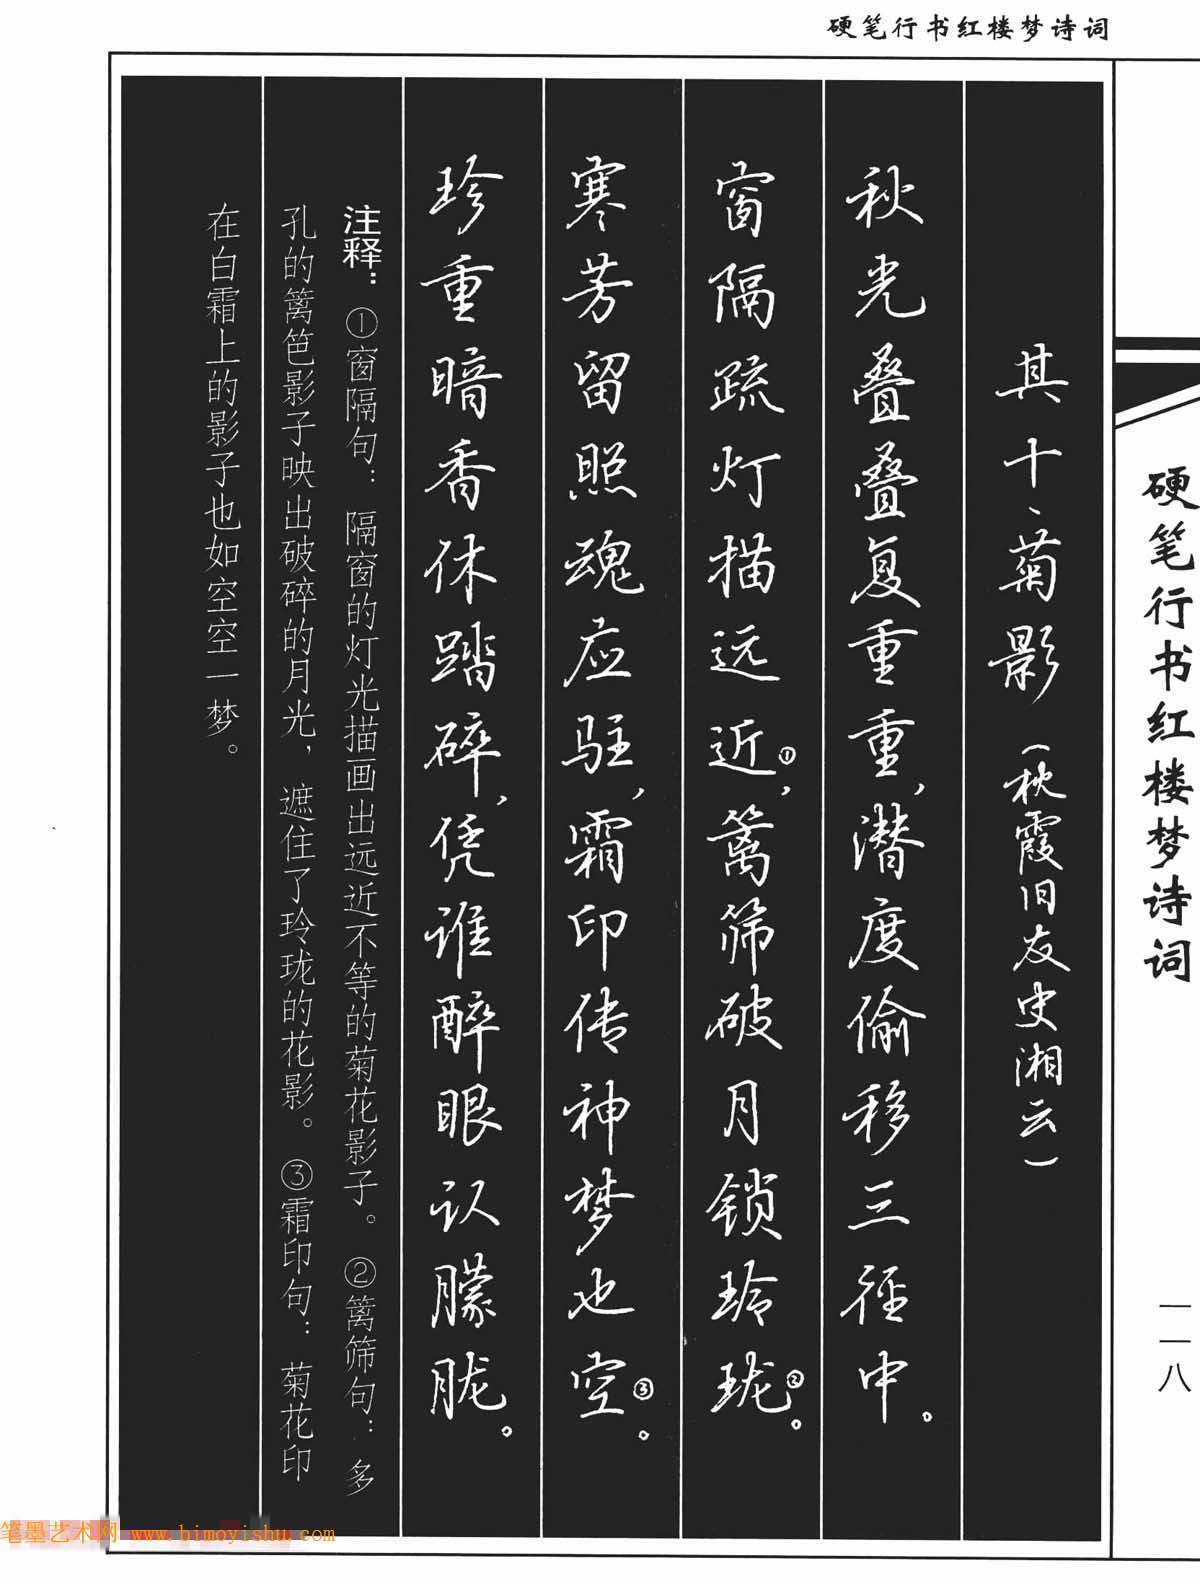 硬笔行书红楼梦诗词
其十、菊影（枕霞旧友史湘云）
秋光叠叠复重重，潜度偷移三径中。
窗隔疏灯描远近①，篱筛破月锁玲珑②。
寒芳留照魂应驻，霜印传神梦也空③。
珍重暗香休踏碎，凭谁醉眼认朦胧。
注释：①窗隔句：隔窗的灯光描画出远近不等的菊花影子。②篱筛句：多
孔的篱笆影子映出破碎的月光，遮住了玲珑的花影。③霜印句：菊花印
在白霜上的影子也如空空一梦。
硬笔行书红楼梦诗词
一一八
笔墨艺术网 www.bimoyishu.com